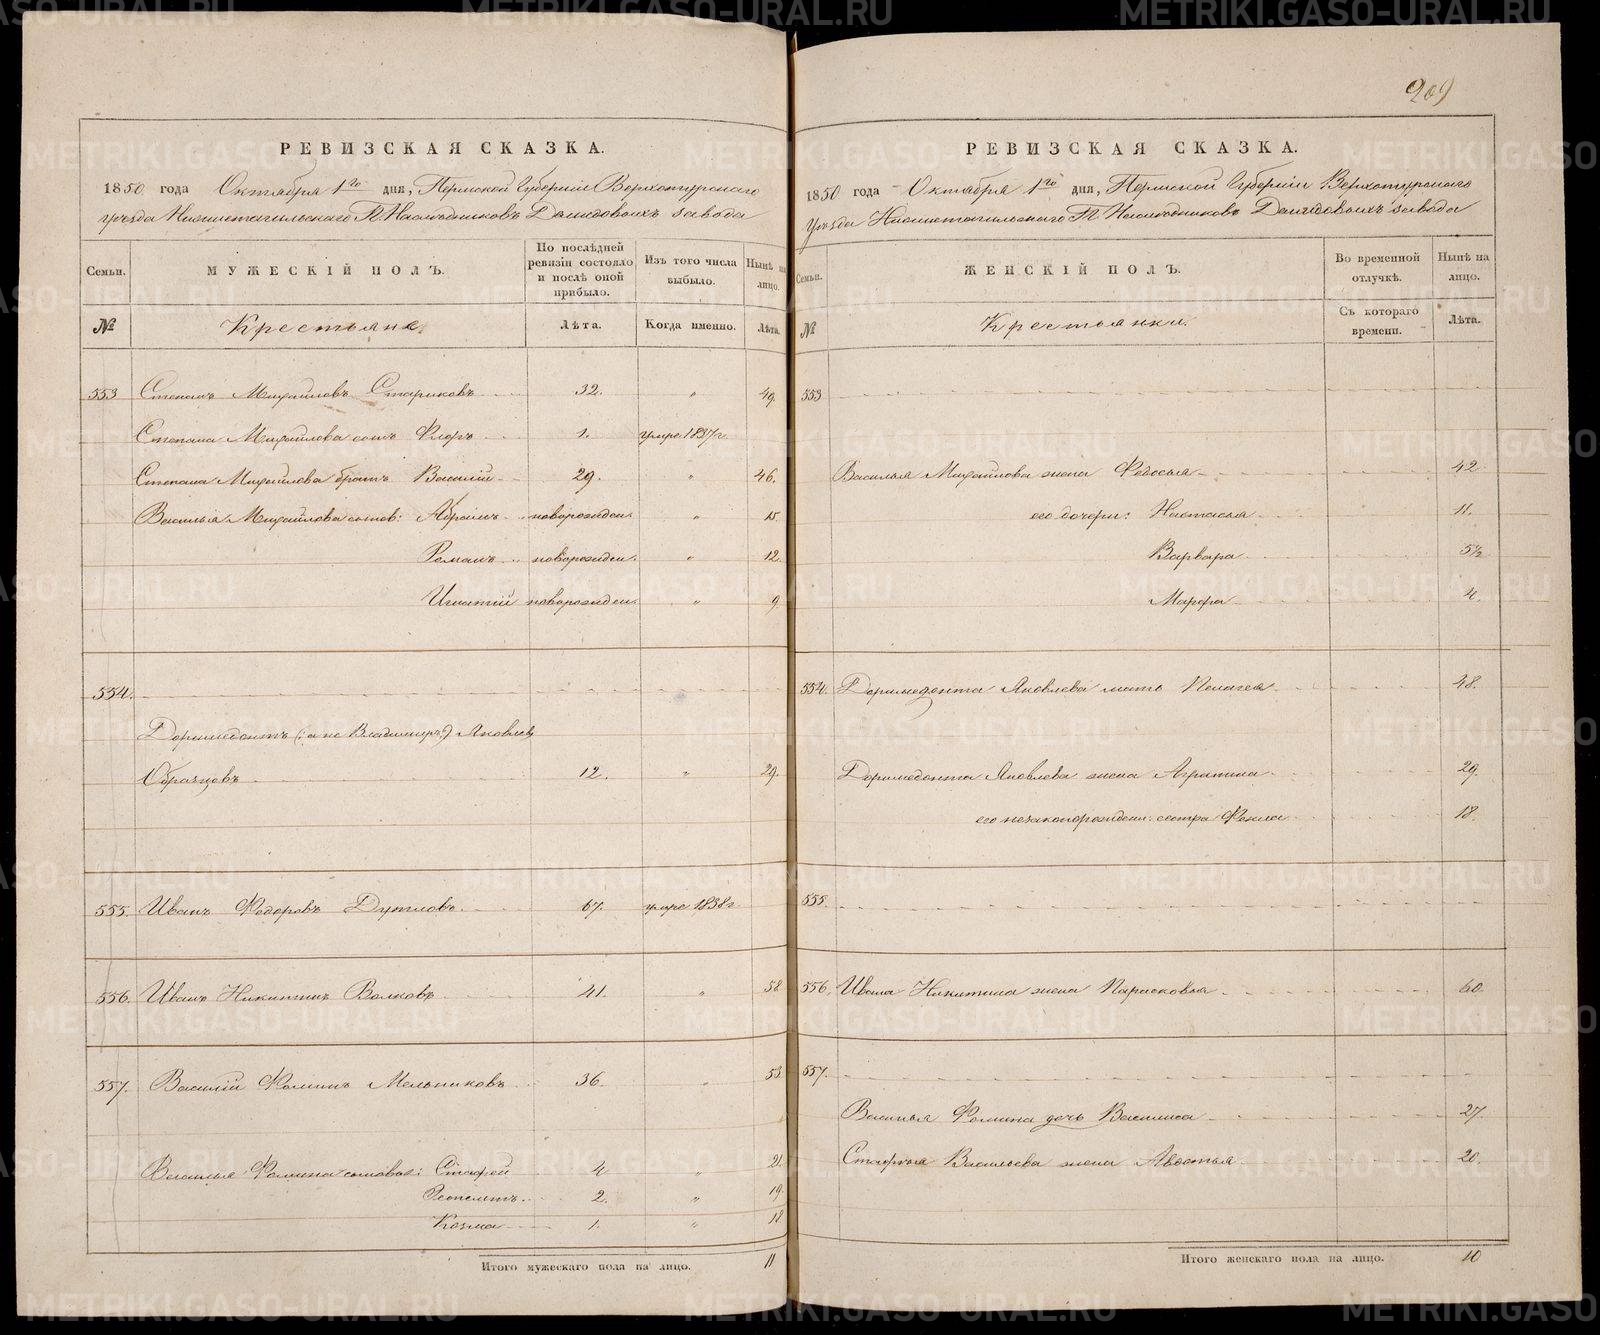 209
РЕВИЗСКАЯ СКАЗКА.
1850 года Октября 1го дня, Пермской Губерніи Верхотурскаго
уѣзда Нижнетагильскаго Г.Г. Наслѣдниковъ Демидовыхъ завода
Семьи. МУЖЕСКІЙ ПОЛЪ. По послѣдней ревизіи состояло и послѣ оной прибыло. Изъ того числа выбыло. Нынѣ на лицо.
№ Крестьяне. Лѣта. Когда именно. Лѣта.
553 Степанъ Михайловъ Стариковъ 32. " 49.
Степана Михайлова сынъ Флоръ 1. умре 1837 г.
Степана Михайлова братъ Василій 29. " 46.
Василья Михайлова сынов: Абрамъ новорожден. " 15
Романъ новорожден. " 12.
Игнатій новорожден. " 9
554.
Доримедонтъ (: а не Владимиръ) Яковлевъ
Образцовъ 12. " 29.
555. Иванъ Федоровъ Дутловъ 67. умре 1838 г.
556. Иванъ Никитинъ Волковъ 41. " 58
557. Василій Фоминъ Мельниковъ 36. " 53
Василья Фомина сыновья: Стафей 4 " 21.
Феопемптъ 2. " 19.
Козма 1. " 18
Итого мужескаго пола на лицо. 11
РЕВИЗСКАЯ СКАЗКА.
1850 года Октября 1го дня, Пермской Губерніи Верхотурскаго
Уѣзда Нижнетагильскаго Г.Г. Наслѣдниковъ Демидовыхъ завода
Семьи. ЖЕНСКІЙ ПОЛЪ. Во временной отлучкѣ. Нынѣ на лицо.
№ Крестьянки. Съ котораго времени. Лѣта.
553
Василья Михайлова жена Федосья 42.
его дочери: Настасья 11.
Варвара 5½
Марфа 4.
554. Доримедонта Яковлева мать Пелагея 48.
Доримедонта Яковлева жена Аграпина 29.
его незаконорожден: сестра Фекла 18.
555.
556. Ивана Никитина жена Парасковья 60.
557.
Василья Фомина дочь Василиса 27
Стафѣя Васильева жена Авдотья 20.
Итого женскаго пола на лицо. 10
METRIKI.GASO-URAL.RU